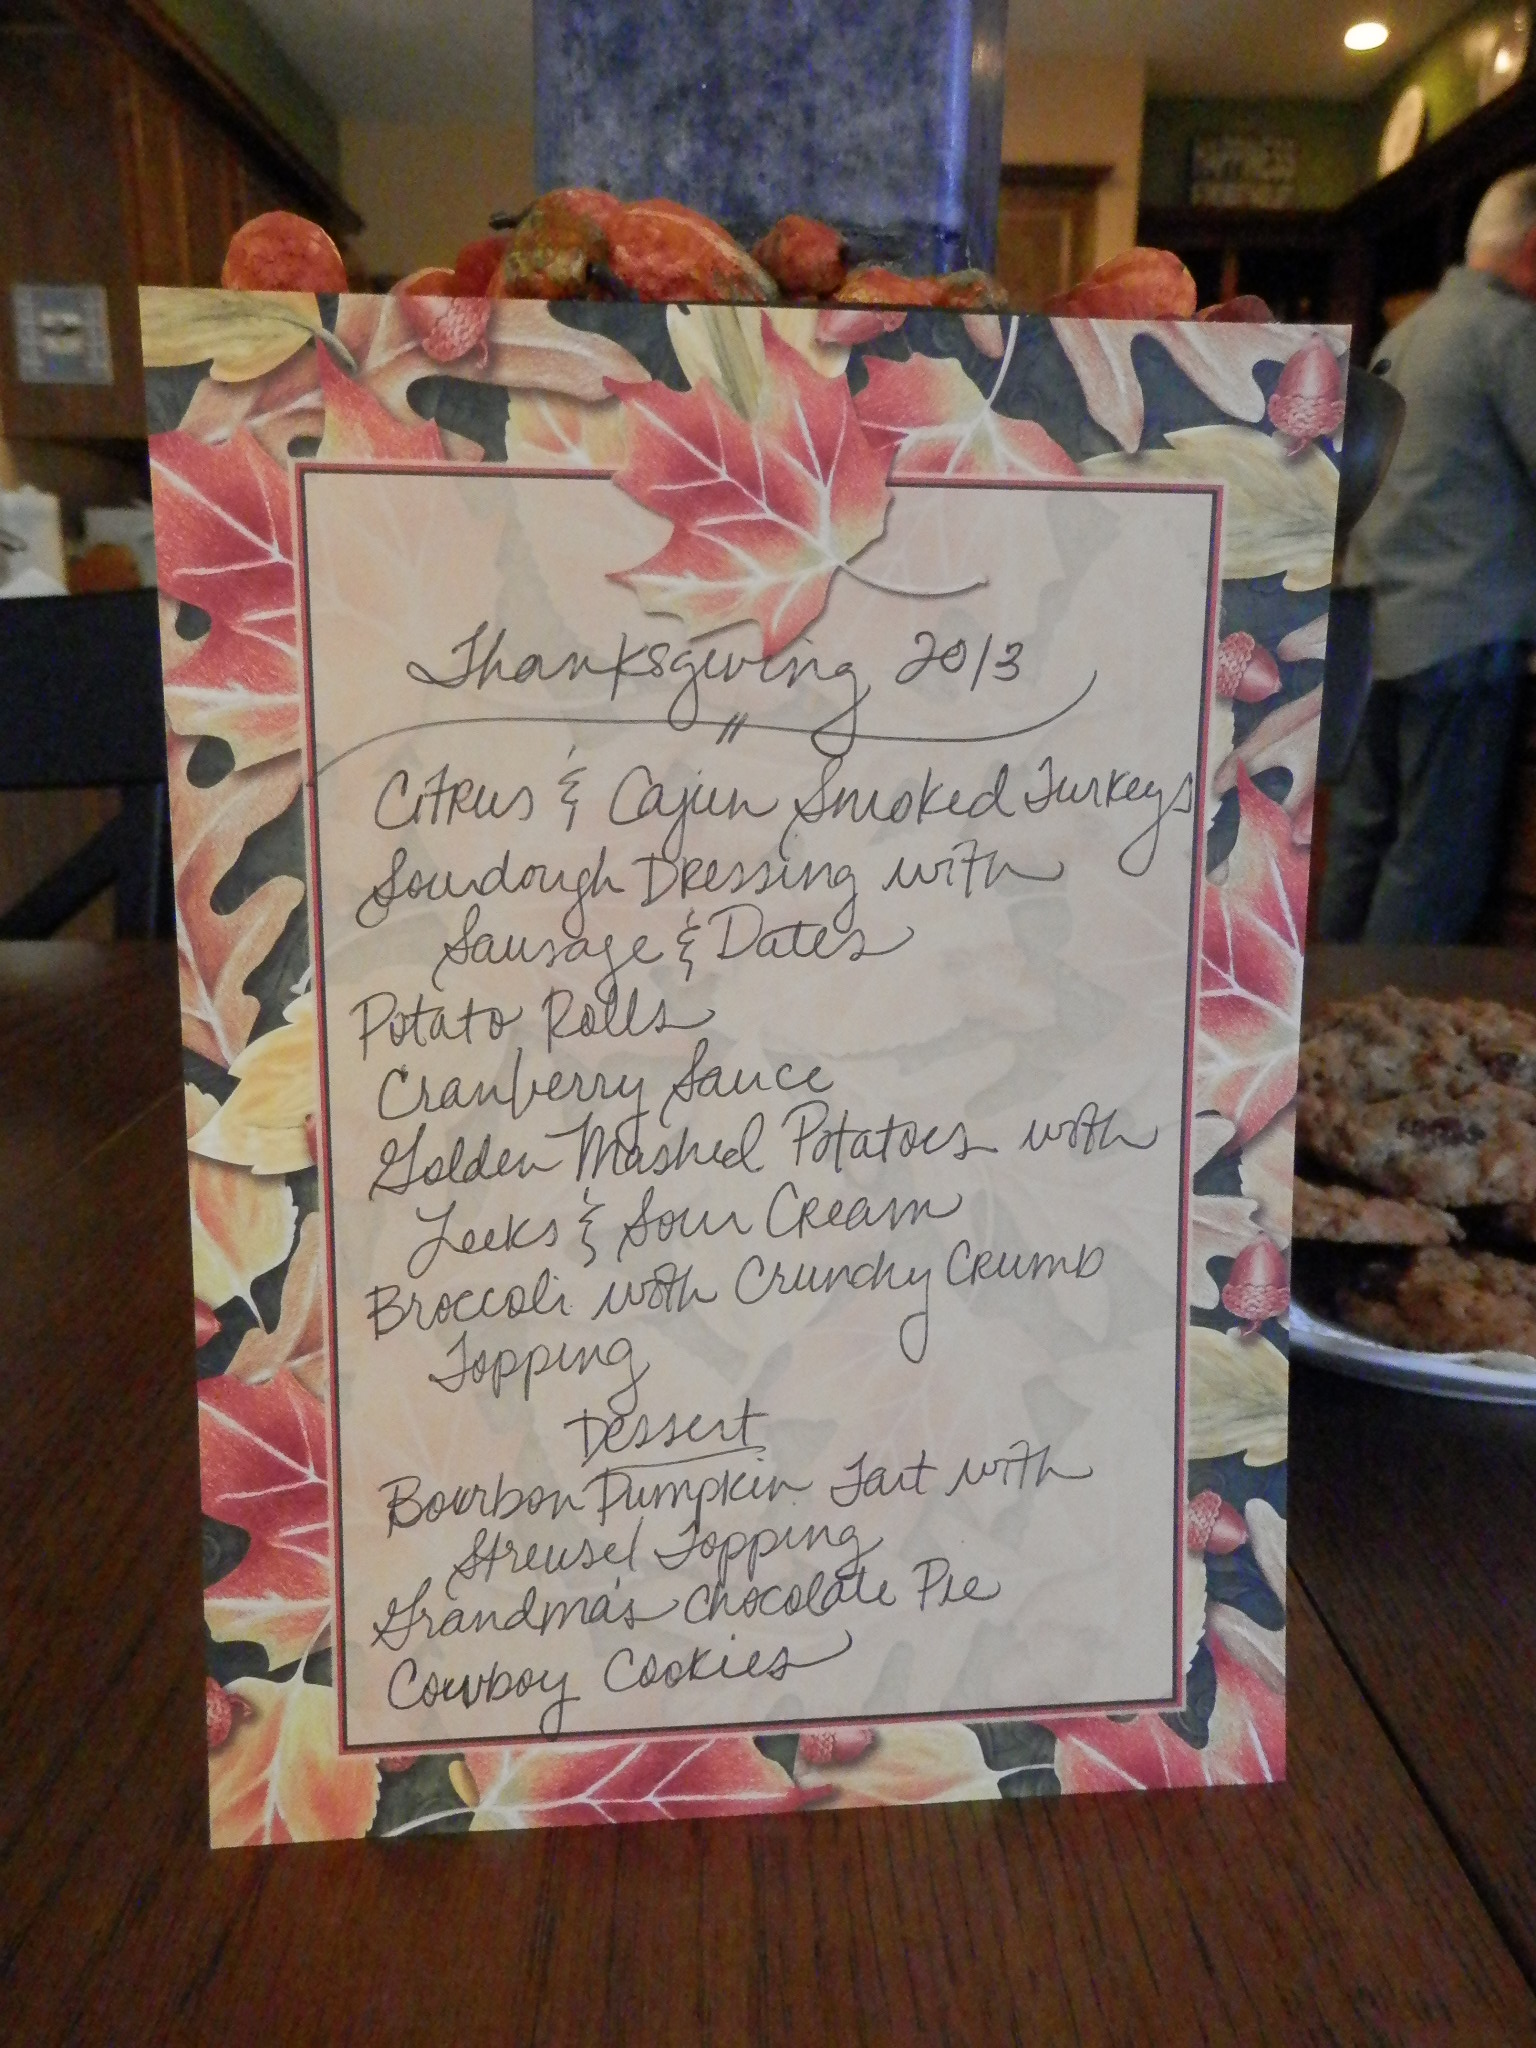 Thanksgiving 2013
Citrus & Cajun Smoked Turkeys
Sourdough Dressing with
Sausage & Dates
Potato Rolls
Cranberry Sauce
Golden Mashed Potatoes with
Leeks & Sour Cream
Broccoli with Crunchy Crumb
Topping
Dessert
Bourbon Pumpkin Tart with
Streusel Topping
Grandma's Chocolate Pie
Cowboy Cookies